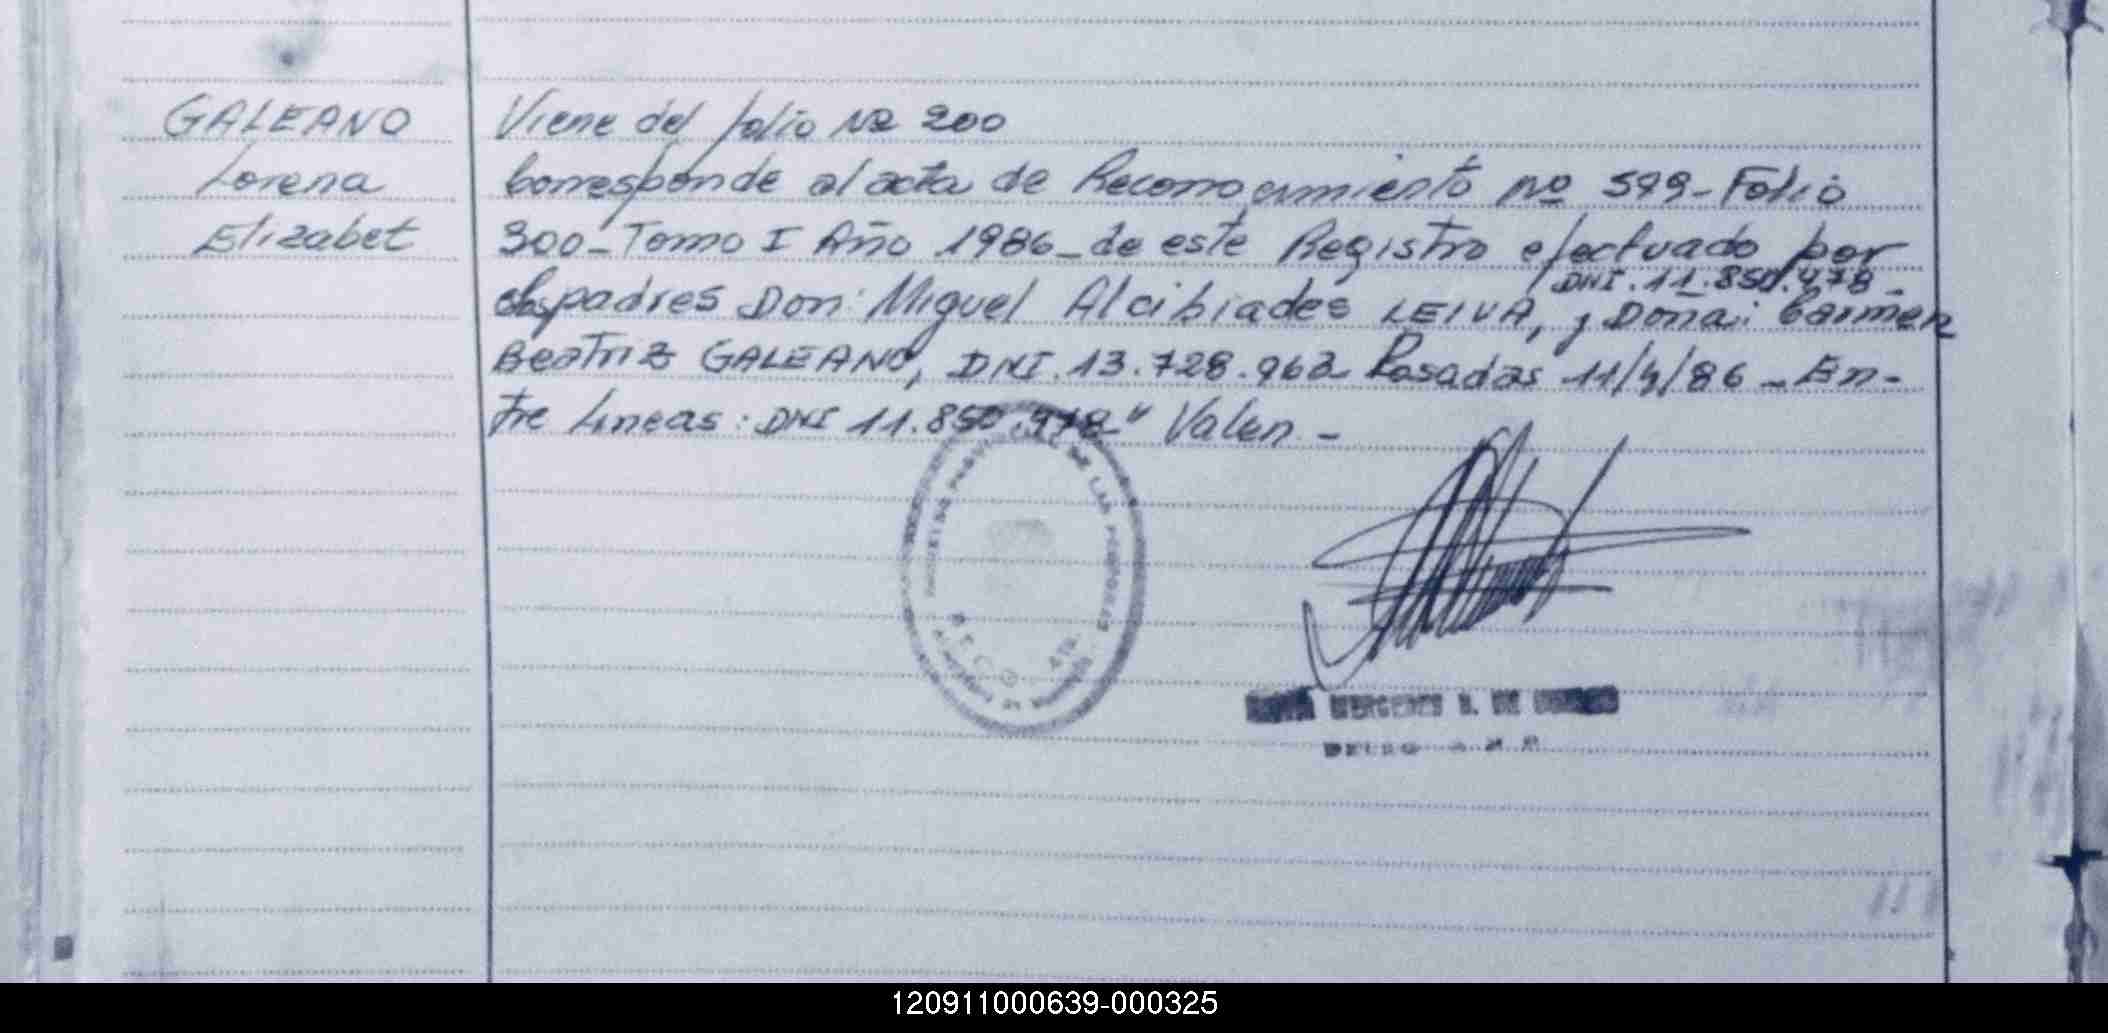 GALEANO
Lorena
Elizabet
Viene del folio Nº 200
Corresponde al acta de Reconocimiento nº 599 - Folio
300 - Tomo I Año 1986 - de este Registro efectuado por
DNI. 11.850.478 -
los padres Don: Miguel Alcibiades LEIVA, y Doña: Carmen
Beatriz GALEANO, DNI. 13.728.962 Posadas 11/4/86 - En-
tre lineas: DNI 11.850.978" Valen -
DE LAS PERSONAS
MERCEDES DE
120911000639-000325